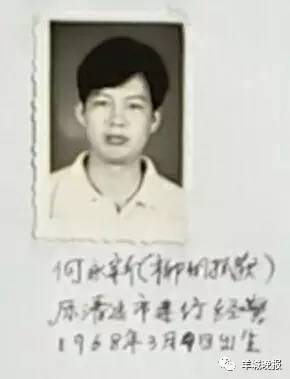 何永新(柳州抓获)
原清远市建行经理
1968年3月9日出生
羊城晚报